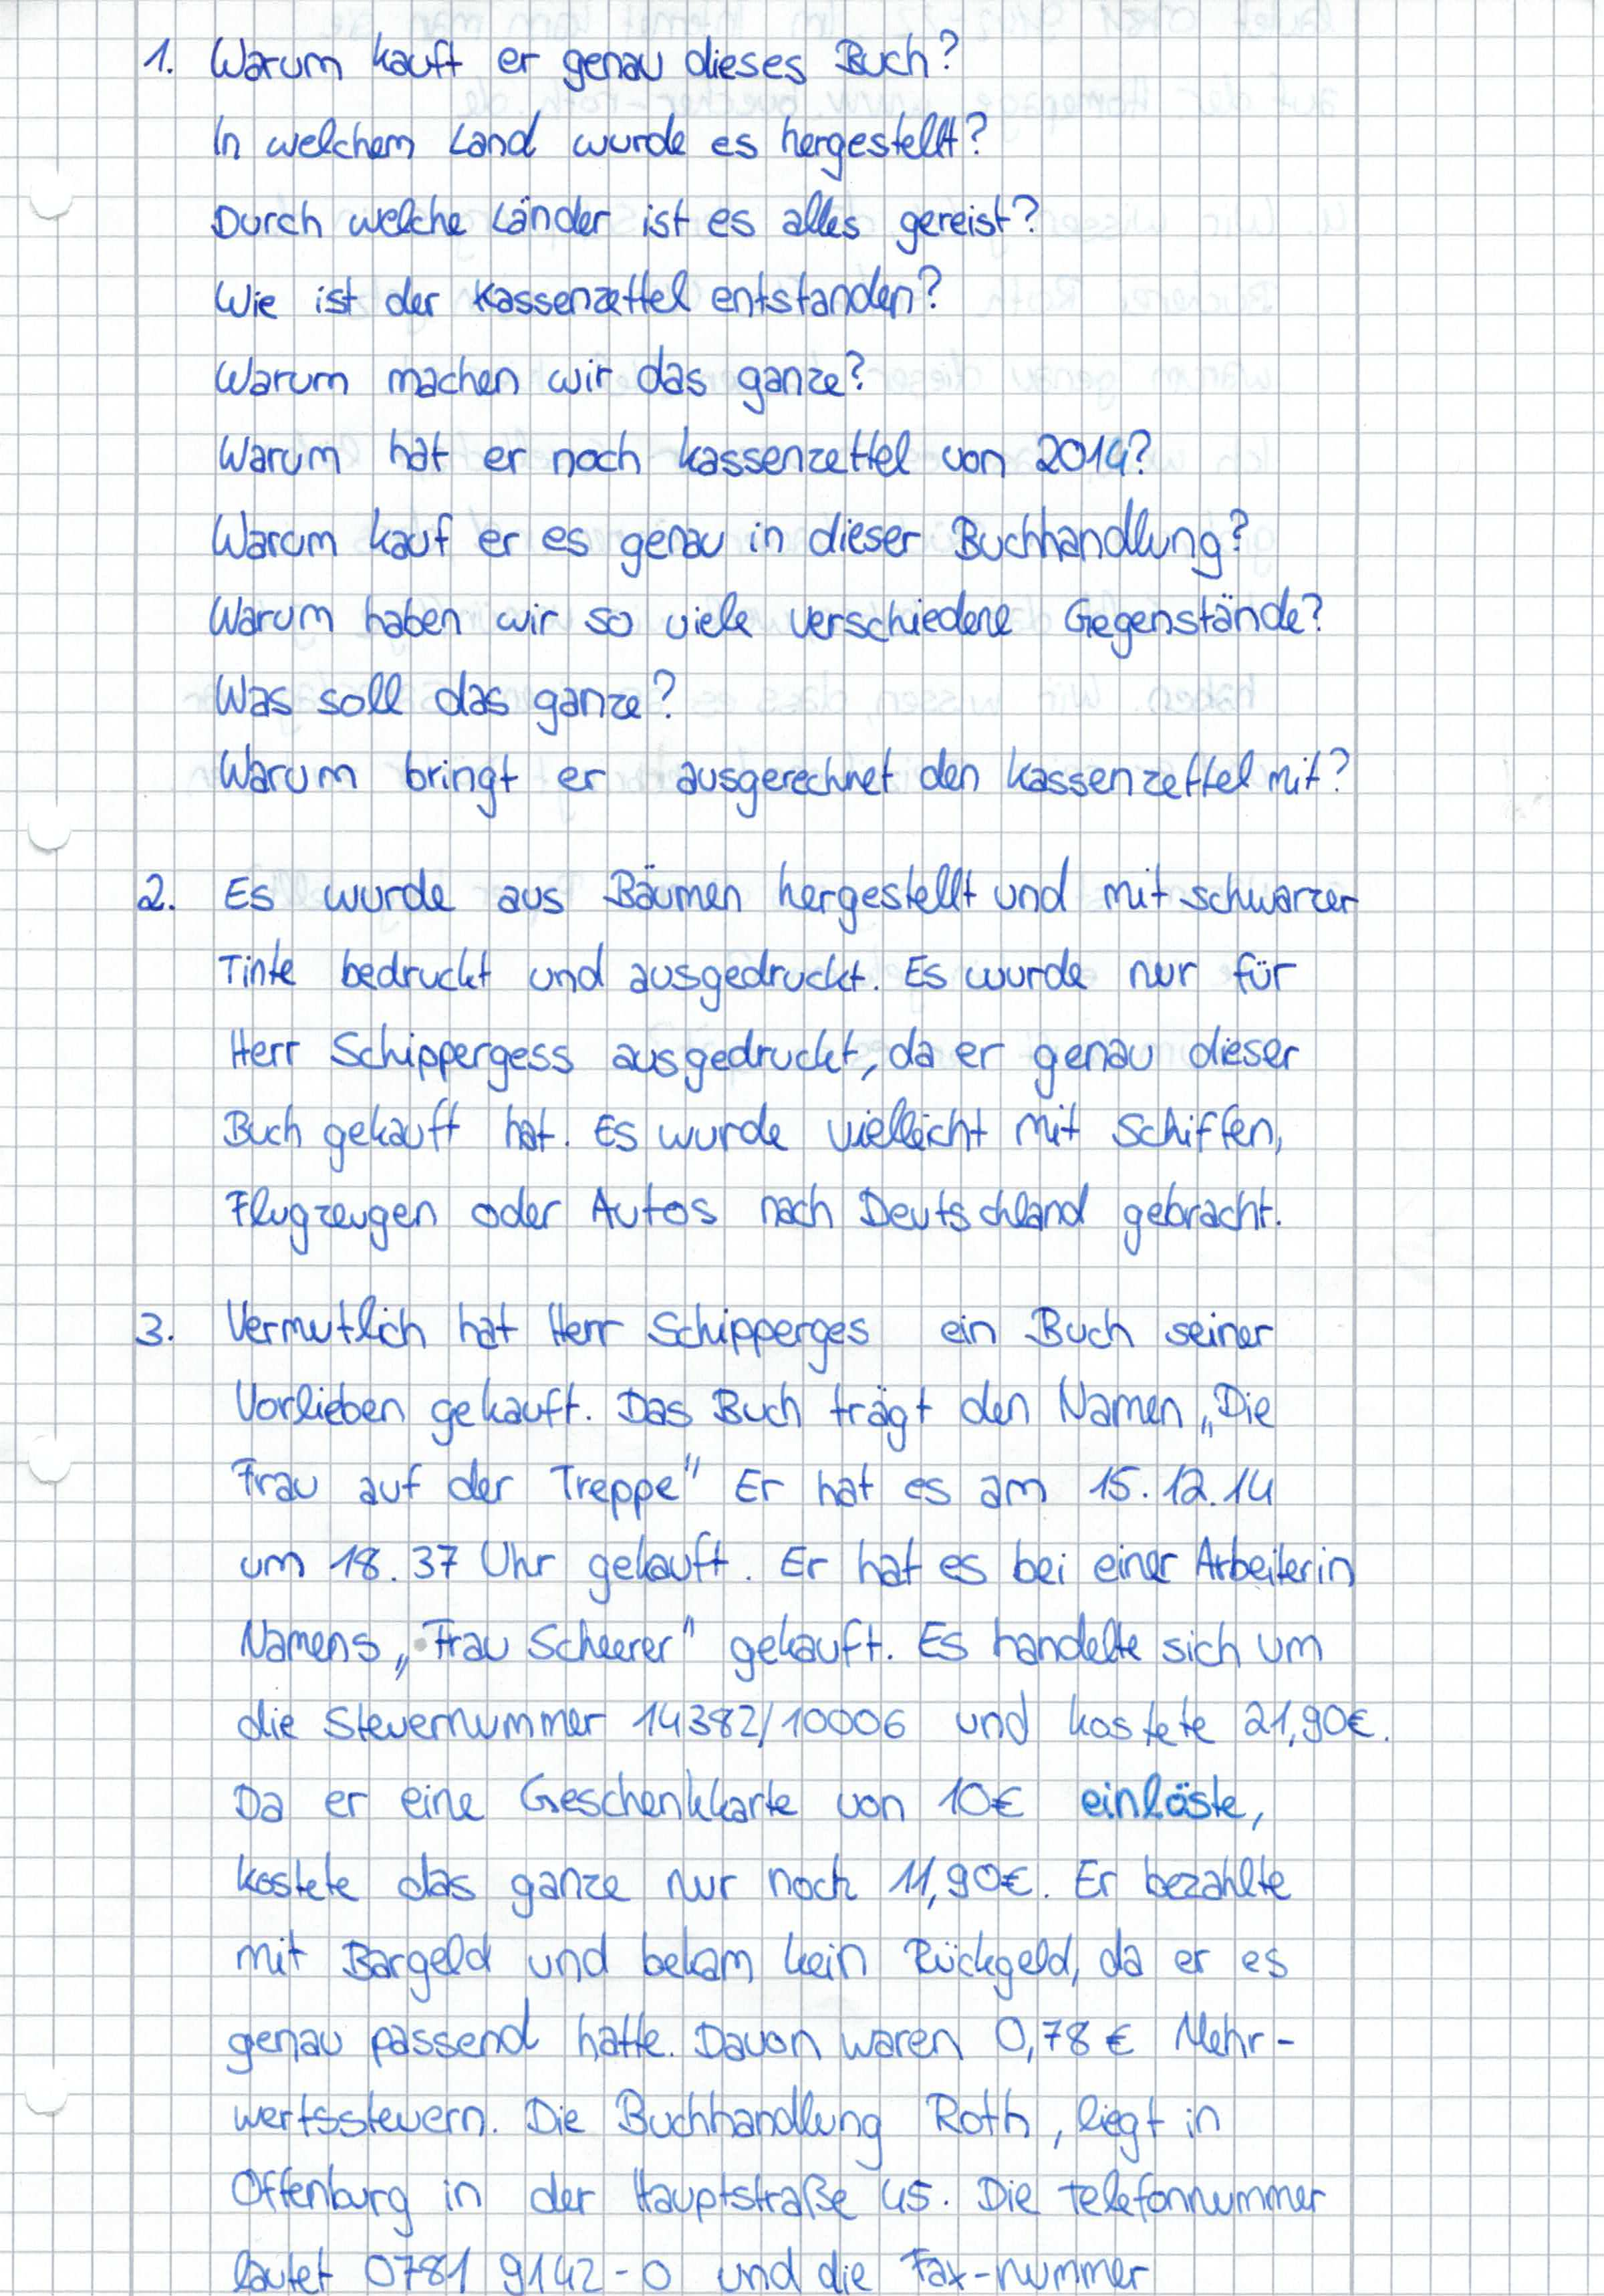 1. Warum kauft er genau dieses Buch?
In welchem Land wurde es hergestellt?
Durch welche Länder ist es alles gereist?
Wie ist der Kassenzettel entstanden?
Warum machen wir das ganze?
Warum hat er noch kassenzettel von 2014?
Warum kauf er es genau in dieser Buchhandlung?
Warum haben wir so viele verschiedene Gegenstände?
Was soll das ganze?
Warum bringt er ausgerechnet den kassenzettel mit?
2. Es wurde aus Bäumen hergestellt und mit schwarzer
Tinte bedruckt und ausgedruckt. Es wurde nur für
Herr Schippergess ausgedruckt, da er genau dieser
Buch gekauft hat. Es wurde vielleicht mit Schiffen,
Flugzeugen oder Autos nach Deutschland gebracht.
3. Vermutlich hat Herr Schipperges ein Buch seiner
Vorlieben gekauft. Das Buch trägt den Namen „Die
Frau auf der Treppe" Er hat es am 15.12.14
um 18.37 Uhr gekauft. Er hat es bei einer Arbeiterin
Namens „Frau Scheerer" gekauft. Es handelte sich um
die Steuernummer 14382/10006 und kostete 21,90€.
Da er eine Geschenkkarte von 10€ einlöste,
kostete das ganze nur noch 11,90€. Er bezahlte
mit Bargeld und bekam kein Rückgeld, da er es
genau passend hatte. Davon waren 0,78 € Mehr-
wertssteuern. Die Buchhandlung Roth, liegt in
Offenburg in der Hauptstraße 45. Die telefonnummer
lautet 0781 9142-0 und die Fax-nummer